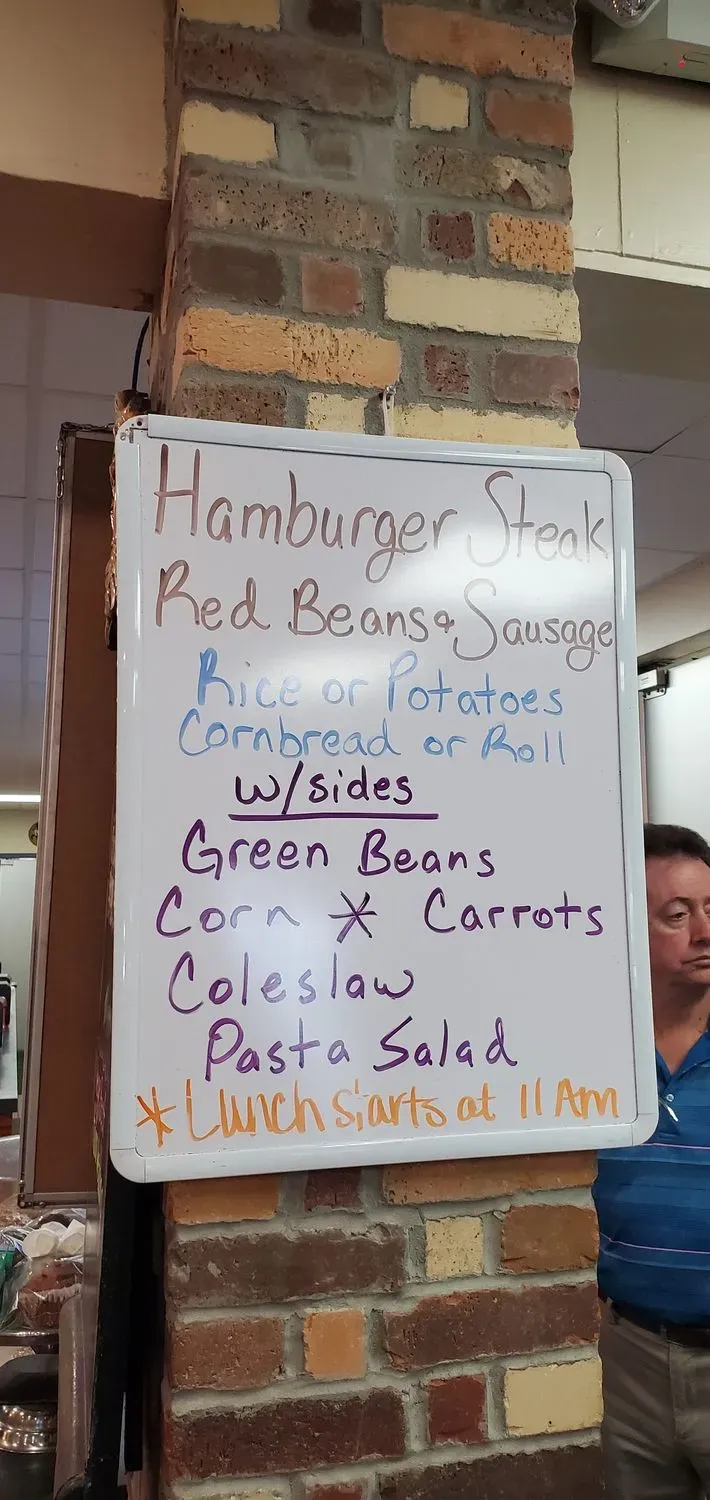 Hamburger Steak
Red Beans & Sausage
Rice or Potatoes
Cornbread or Roll
w/sides
Green Beans
Corn * Carrots
Coleslaw
Pasta Salad
* Lunch starts at 11 Am